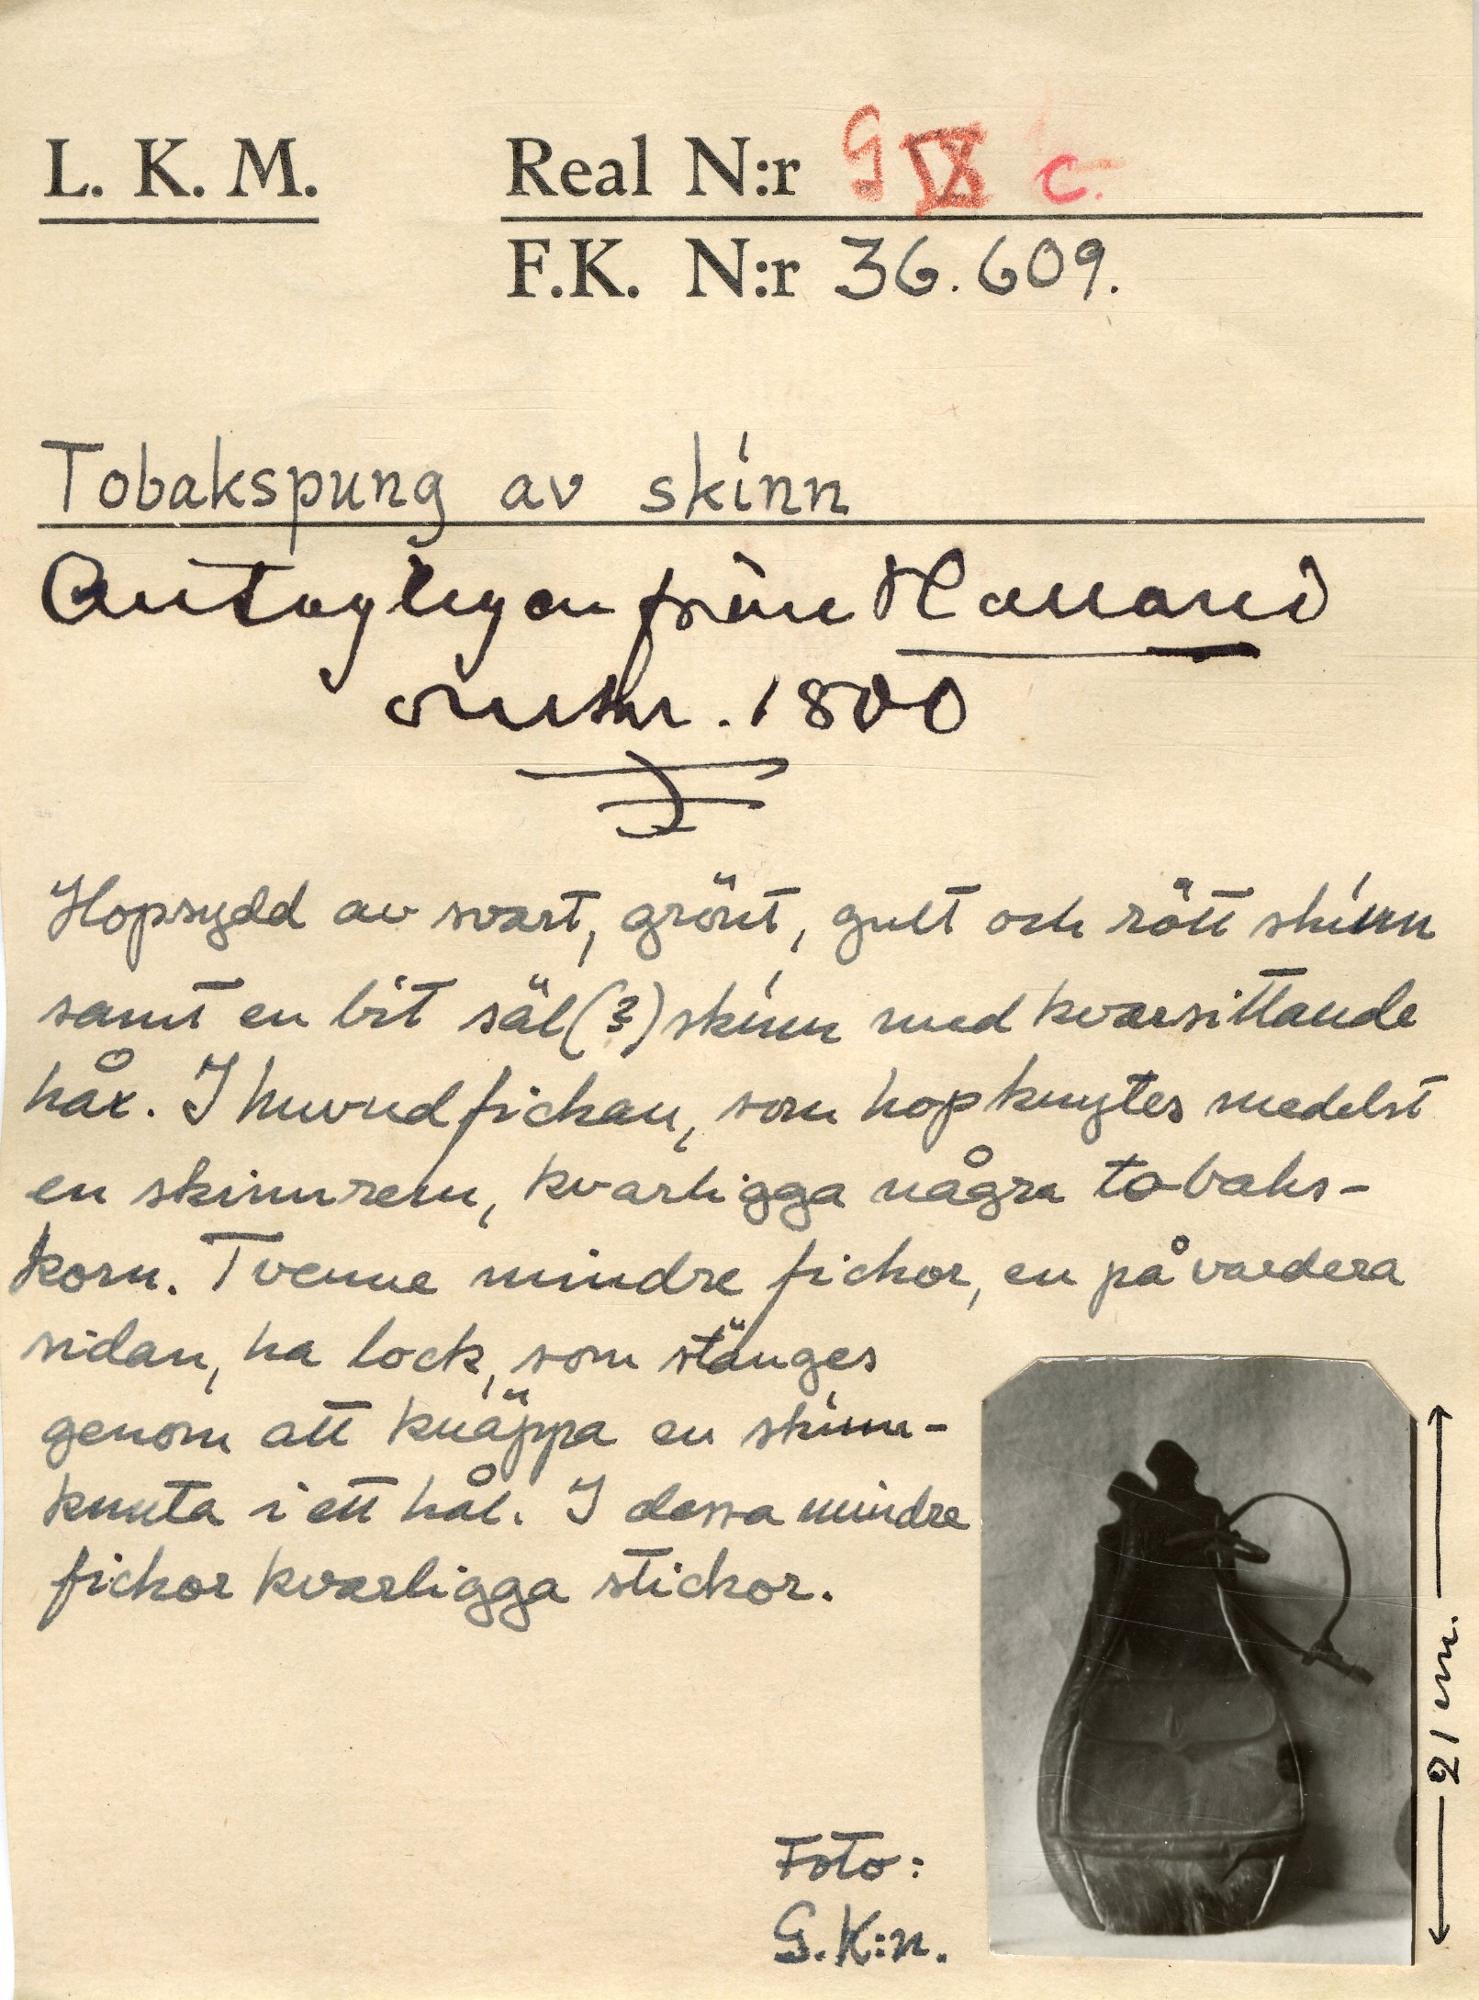 L. K. M.
Real N:r G IX c.
F.K. N:r 36.609.
Tobakspung av skinn
Antagligen från Halland
omkr. 1800
Hopsydd av svart, grönt, gult och rött skinn
samt en bit säl(?)skinn med kvarsittande
hår. I huvudfickan, som hopknytes medelst
en skinnrem, kvarligga några tobaks-
korn. Tvenne mindre fickor, en på vardera
sidan, ha lock, som stänges
genom att knäppa en skinn-
knuta i ett hål. I dessa mindre
fickor kvarligga stickor.
Foto:
G.K:n.
21 cm.